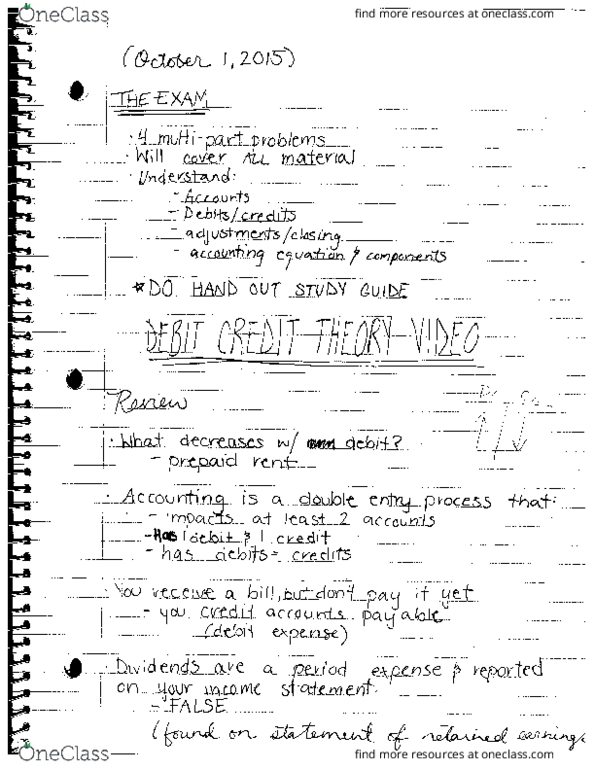 OneClass
find more resources at oneclass.com
(October 1, 2015)
THE EXAM
· 4 multi-part problems
· Will cover ALL material
· Understand:
- Accounts
- Debits/credits
- adjustments/closing
- accounting equation & components
*DO HAND OUT STUDY GUIDE
DEBIT CREDIT THEORY VIDEO
Review
· What decreases w/ debit?
- prepaid rent
· Accounting is a double entry process that:
- impacts at least 2 accounts
- Has 1 debit & 1 credit
- has debits = credits
· You receive a bill, but don't pay it yet
- you credit accounts payable
(debit expense)
· Dividends are a period expense & reported
on your income statement.
- FALSE
(found on statement of retained earnings
OneClass
find more resources at oneclass.com